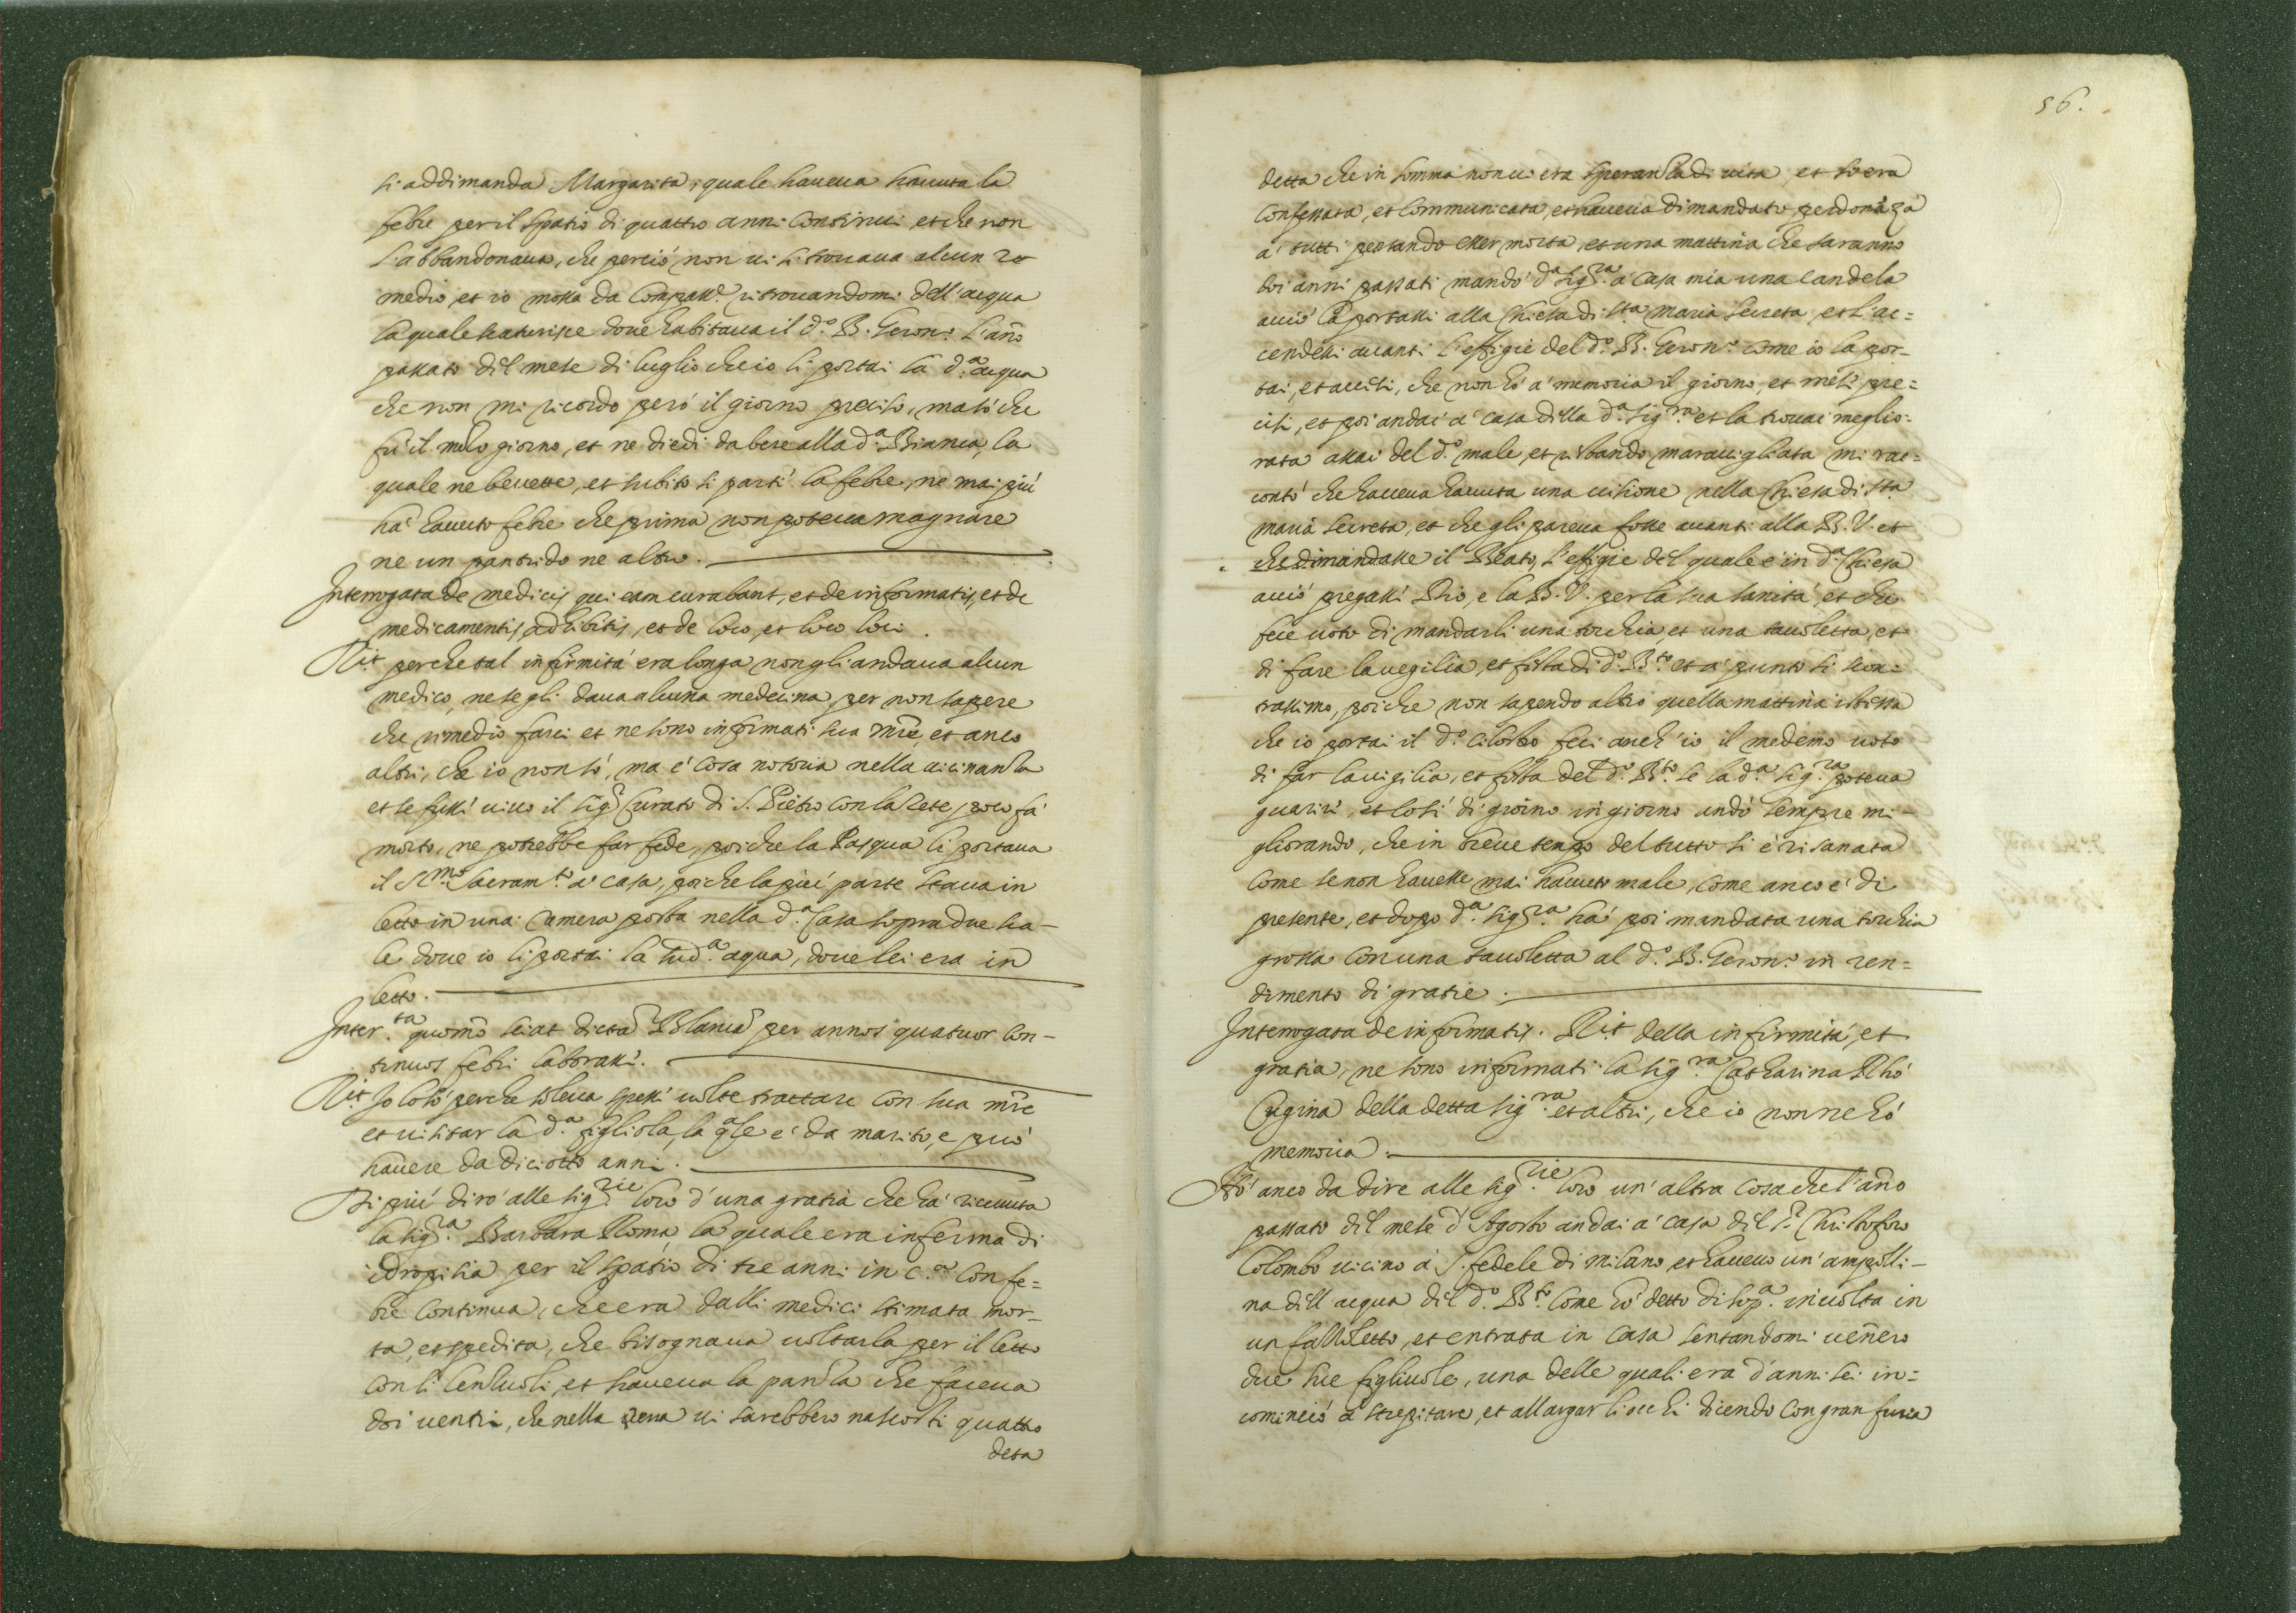 si addimanda Margarita, quale haueua hauuta la
febre per il spatio di quattro anni continui, et che non
l'abbandonaua, che perciò non ui si trouaua alcun re
medio, et io mossa da compass.e ritrouandomi dell'acqua
la quale scaturisce doue habitaua il d.o B. Geron.o l'año
passato del mese di luglio che io li portai la d.a acqua
che non mi ricordo però il giorno preciso, ma sò che
fù il mezo giorno, et ne diedi da bere alla d.a Bianca, la
quale ne beuette, et subito si partì la febre, ne mai più
hà hauuto febre che prima non poteua magnare
ne un pantrido ne altro.
Interrogata de medicis qui eam curabant, et de informatis, et de
medicamentis adhibitis, et de loco, et loco loci.
R.it perche tal infirmità era longa non gli andaua alcun
medico, ne se gli daua alcuna medecina per non sapere
che rimedio farci et ne sono informati sua mre, et anco
altri, che io non sò, ma è cosa notoria nella uicinanza
et se fussi uiuo il sig.r Curato di S. Pietro con la Rete poco fà
morto, ne potrebbe far fede, poiche la Pasqua li portaua
il S.mo Sacram.to a' casa, poiche la più parte staua in
letto in una camera posta nella d.a Casa sopra due sca-
le doue io li portai la sud.a aqua, doue lei era in
letto.
Inter.ta quomo sciat dictã Blanca per annos quatuor con-
tinuos febri laborasse.
R.it Io lo sò perche soleua spess' uolte trattare con sua mre
et uisitar la d.a figliola la qale è da marito, e può
hauere da diciotto anni.
Di più dirò alle sig.rie loro d'una gratia che hà riceuuta
la sig.ra Barbara Roma la quale era inferma di
idropisia per il spatio di tre anni in c.a con fe=
bre continua, che era dalli medici stimata mor-
ta, et spedita, che bisognaua uoltarla per il letto
con li lenzuoli, et haueua la panza che faceua
doi uentri, che nella ui sarebbero nascosti quattro
deta
56.
detta che in somma non ui era speranza di uita, et s'era
confessata, et communicata, et haueua dimandato perdonãza
a' tutti pensando esser morta, et una mattina che saranno
doi anni passati mandò d.a Sig.ra a' casa mia una candela
acciò la portassi alla Chiesa di s.ta Maria Secreta, et l'ac=
cendessi auanti l'effigie del d.o B. Geron.o come io la por-
tai, et accesi, che non hò a' memoria il giorno, et mesi pre=
cisi, et poi andai a' casa della d.a Sig.ra et la trouai meglio-
rata assai del d.o male, et restando marauigliata mi rac=
contò che haueua hauuta una uisione nella Chiesa di s.ta
Maria Secreta, et che gli pareua fosse auanti alla B. V. et
che dimandasse il Beato, l'effigie del quale è in d.a Chiesa
acciò pregassi Dio, e la B. V. per la sua sanità, et che
fece uoto di mandarli una torchia et una tauoletta, et
di fare la uegilia, et festa di d.o B.to et a' punto si scon=
trassimo, poiche non sapendo altro quella mattina istessa
che io portai il d.o cilostro feci anch'io il medemo uoto
di far la uigilia, et festa del d.o B.to se la d.a Sig.ra poteua
guarire, et così di giorno in giorno andò sempre mi-
gliorando, che in breue tempo del tutto si è risanata
come se non hauesse mai hauuto male, come anco è di
presente, et dopo d.a Sig.ra hà poi mandata una torchia
grossa con una tauoletta al d.o B. Geron.o in ren=
dimento di gratie.
Interrogata de informatis. R.it della infirmità, et
gratia, ne sono informati la sig.ra Catharina Rhò
Cugina della detta sig.ra et altri, che io non ne hò
memoria.
Hò anco da dire alle sig.rie loro un'altra cosa che l'año
passato del mese d'Agosto andai a' casa del S.r Christoforo
Colombo uicino a' S. Fedele di Milano, et haueuo un'ampolli-
na dell'acqua del d.o B.to come hò detto di sop.a inuolta in
un fazzoletto, et entrata in casa sentandomi uennero
due sue figliuole, una delle quali era d'anni sei in=
cominciò a' strepitare, et allargar li occhi dicendo con gran furia